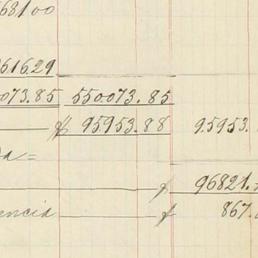 68100
616.29
073.85 550073.85
$ 95953.88 95953.
a=
$ 96821.
encia $ 867.